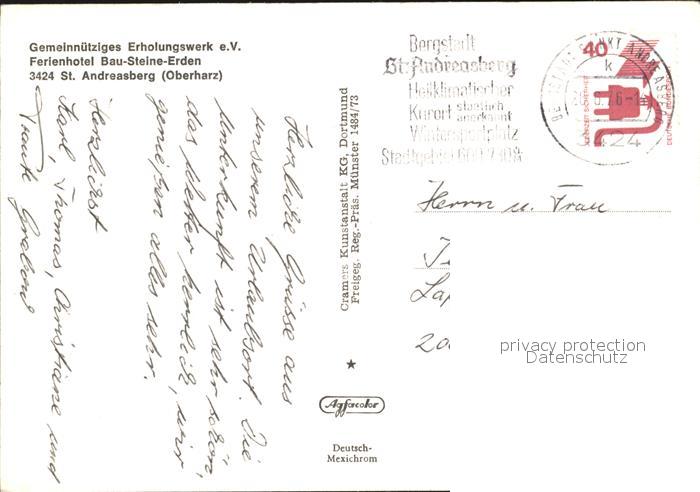 Gemeinnütziges Erholungswerk e.V.
Ferienhotel Bau-Steine-Erden
3424 St. Andreasberg (Oberharz)
Herzliche Grüsse aus
unserem Urlaubsort. Die
Unterkunft ist sehr schön,
das Wetter herrlich, wir
genießen alles sehr.
Herzlichst
Karl, Thomas, Christiane und
Cramers Kunstanstalt KG, Dortmund
Freigeg. Reg.-Präs. Münster 1484/73
Agfacolor
Deutsch-
Mexichrom
Bergstadt
St. Andreasberg
Heilklimatischer
Kurort staatlich anerkannt
Wintersportplatz
Stadtgebiet 600-730m
40
k
Herrn u. Frau
privacy protection
Datenschutz